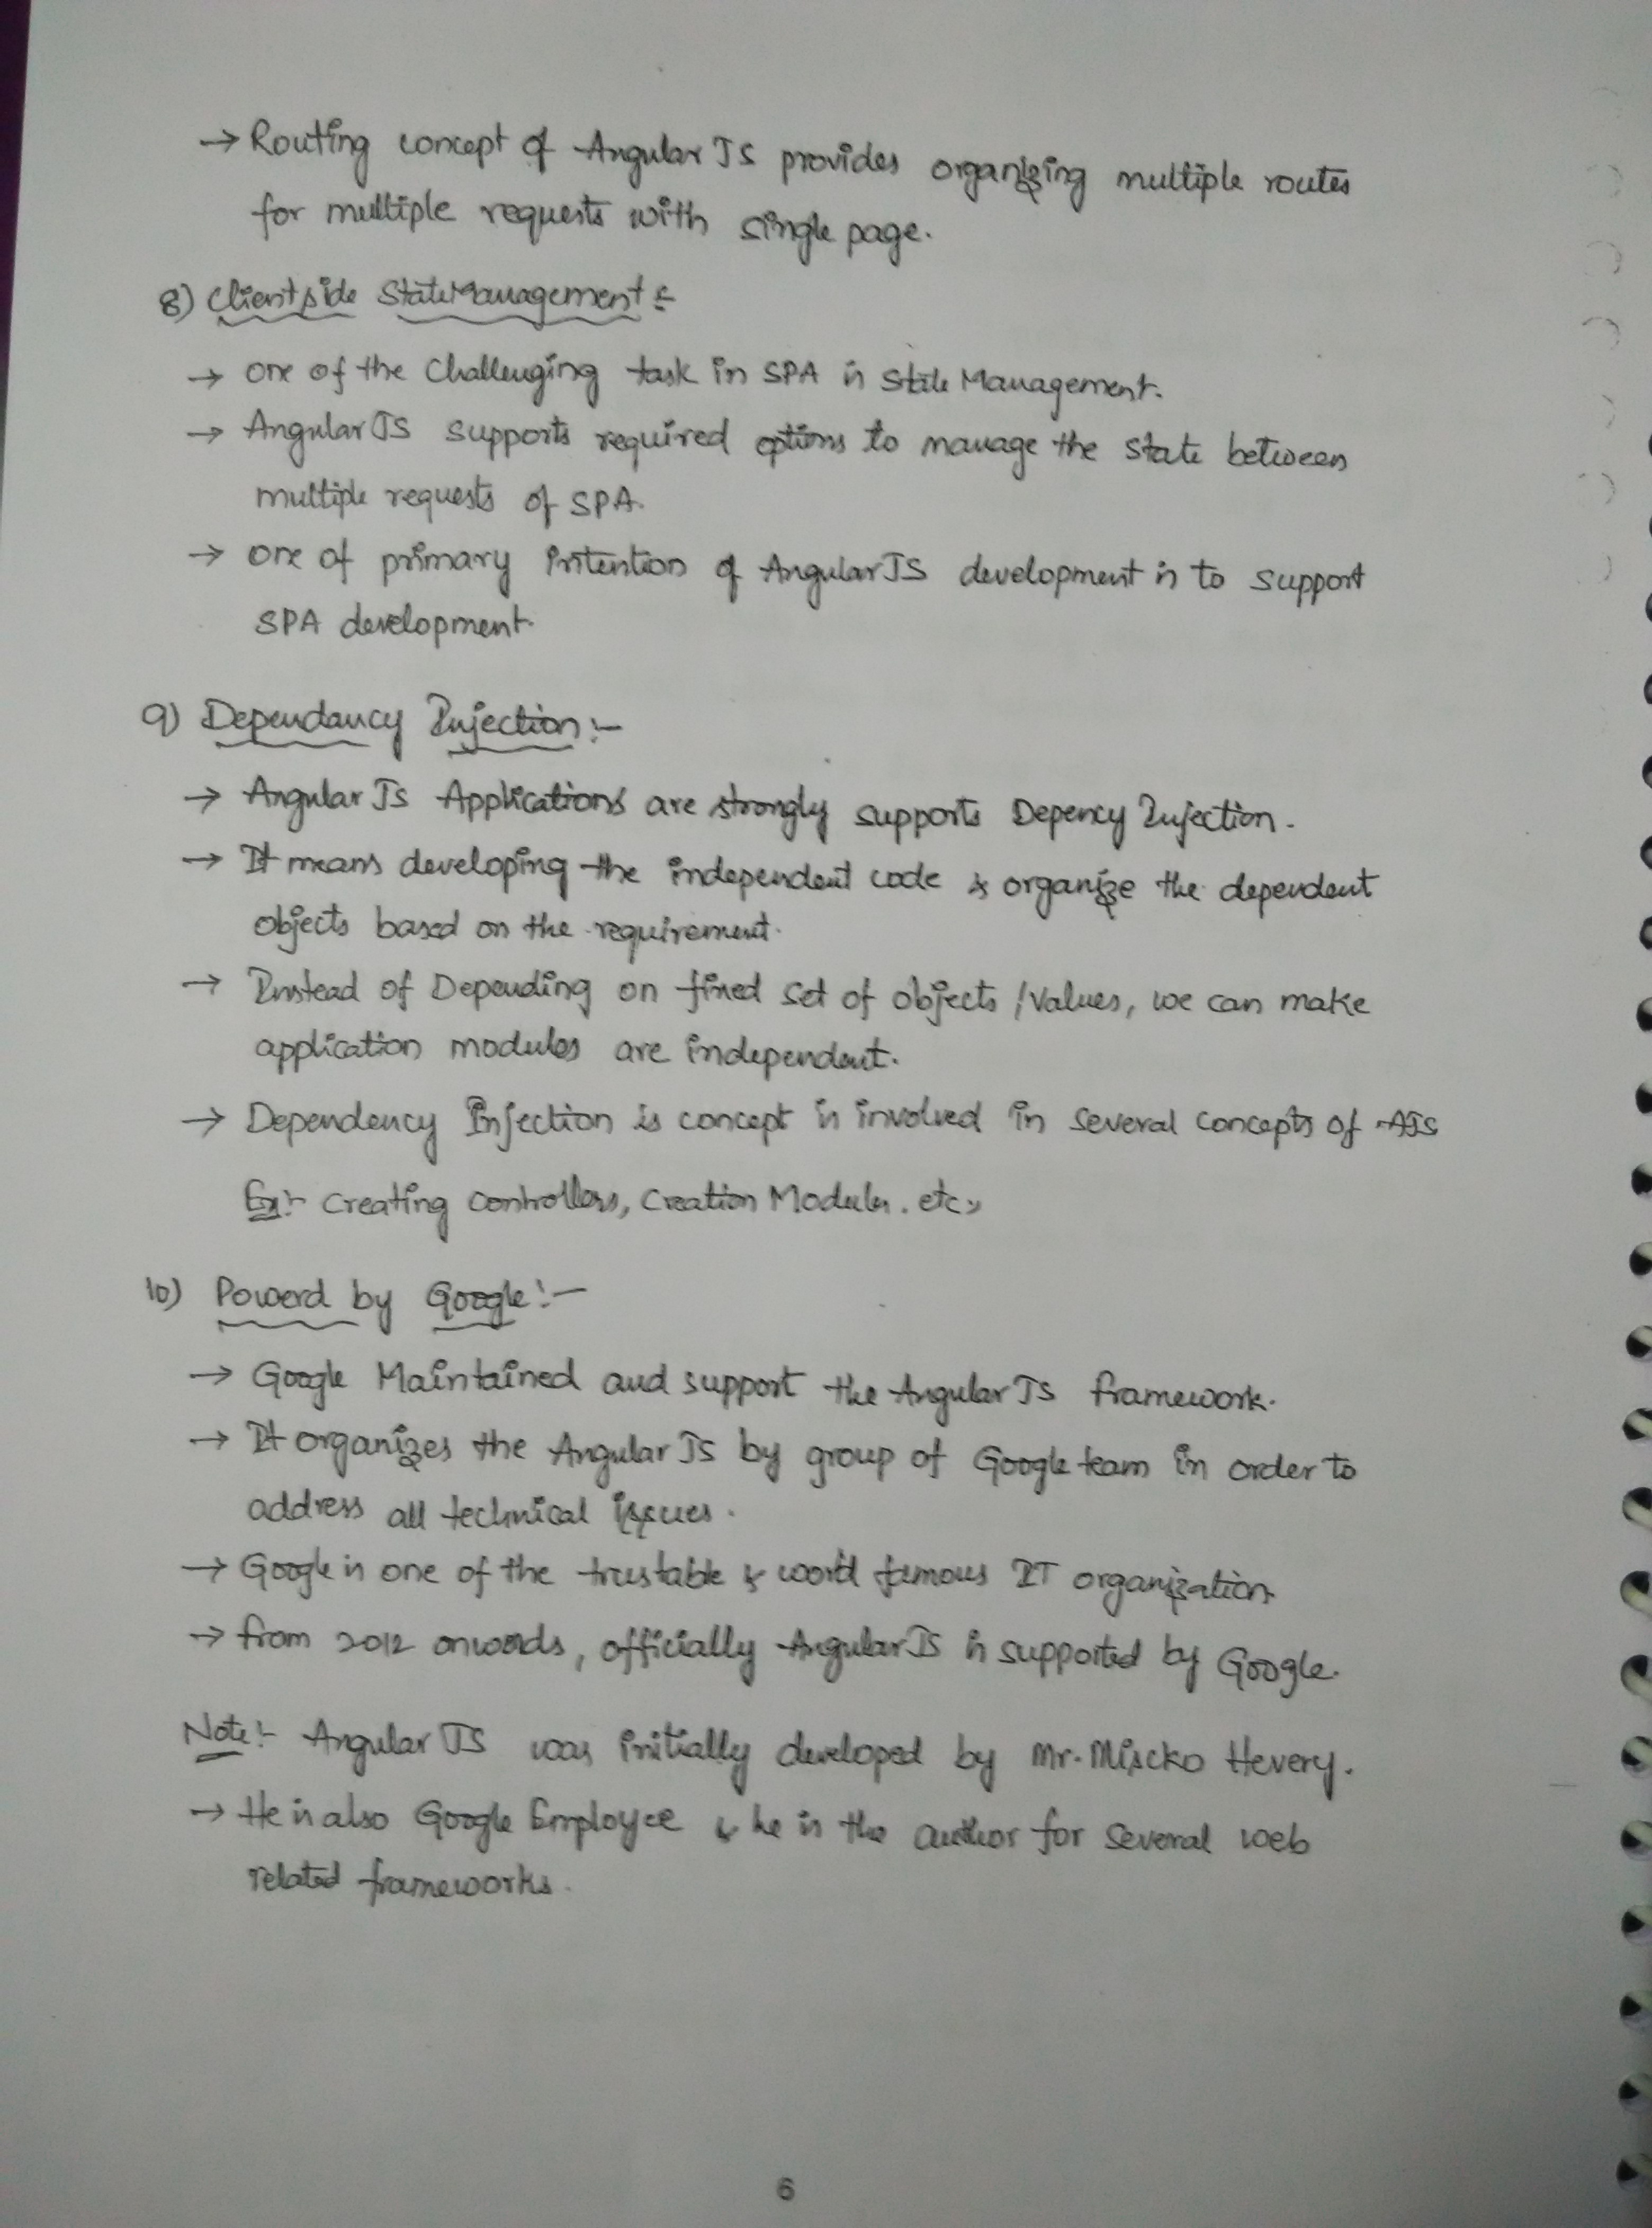 → Routing concept of Angular JS provides organizing multiple routes
for multiple requests with single page.
8) Clientside StateManagement :-
→ one of the Challenging task in SPA is State Management.
→ Angular JS supports required options to manage the state between
multiple requests of SPA.
→ one of primary intention of AngularJS development is to support
SPA development.
9) Dependancy Injection :-
→ Angular Js Applications are strongly supports Depency Injection.
→ It means developing the independent code & organize the dependent
objects based on the requirement.
→ Instead of Depending on fixed set of objects /values, we can make
application modules are independent.
→ Dependency Injection is concept is involved in several concepts of AJS
Ex:- Creating controllers, Creation Modules. etc,
10) Powerd by Google :-
→ Google Maintained and support the Angular JS framework.
→ It organizes the Angular JS by group of Google team in order to
address all technical issues.
→ Google is one of the trustable & world famous IT organization.
→ from 2012 onwards, officially AngularJS is supported by Google.
Note:- Angular JS was initially developed by Mr. Miscko Hevery.
→ He is also Google Employee & he is the author for several web
related frameworks.
6